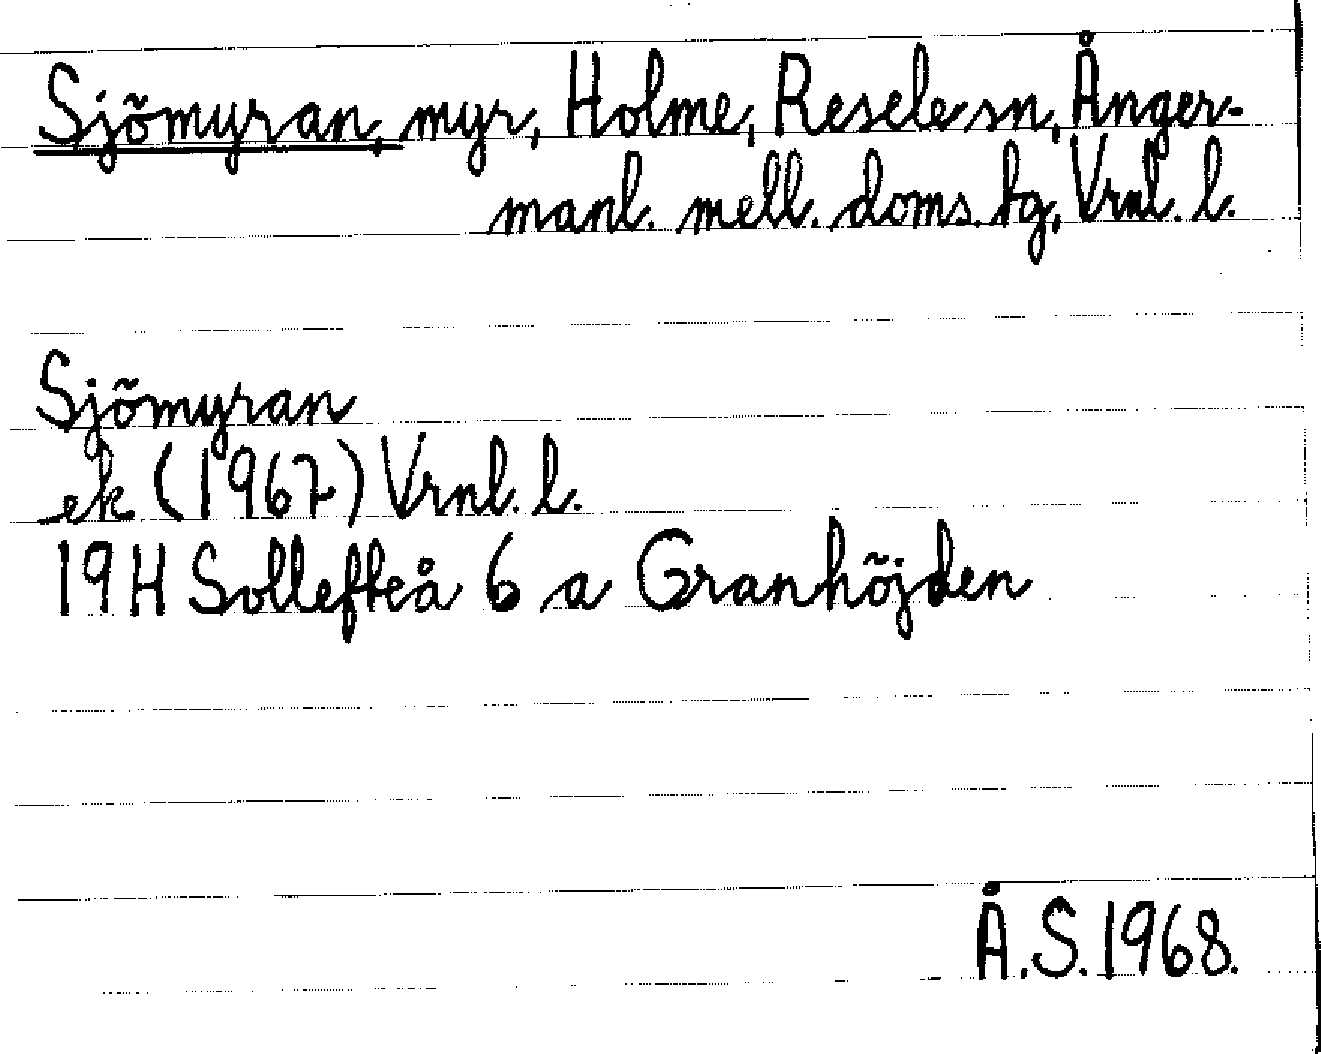 Sjömyran, myr, Holme, Resele sn, Ånger-
manl. mell. doms. tg, Vrnl. l.
Sjömyran
ek (1967) Vrnl. l.
19H Sollefteå 6 a Granhöjden
Å.S. 1968.